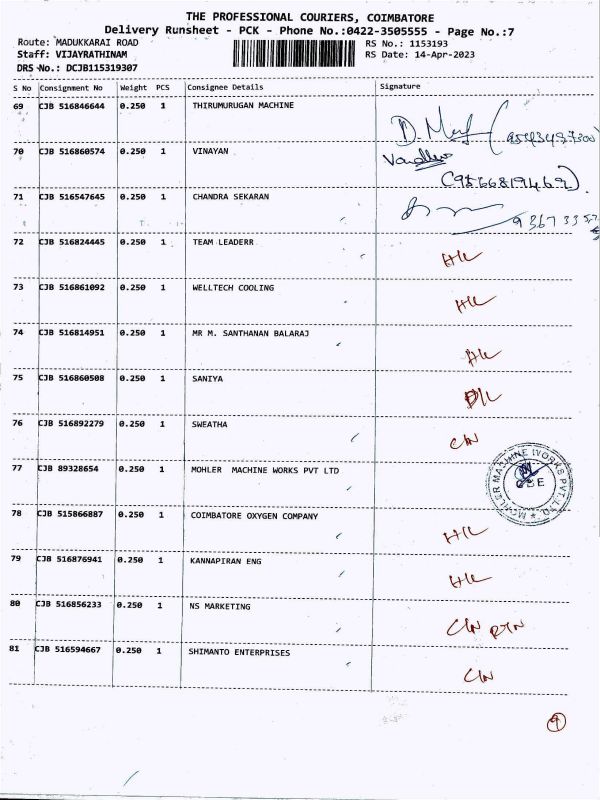 THE PROFESSIONAL COURIERS, COIMBATORE
Delivery Runsheet - PCK - Phone No.:0422-3505555 - Page No.:7
Route: MADUKKARAI ROAD RS No.: 1153193
Staff: VIJAYRATHINAM RS Date: 14-Apr-2023
DRS No.: DCJB115319307
S No Consignment No Weight PCS Consignee Details Signature
69 CJB 516846644 0.250 1 THIRUMURUGAN MACHINE
70 CJB 516860574 0.250 1 VINAYAN
(9566819469)
71 CJB 516547645 0.250 1 CHANDRA SEKARAN
72 CJB 516824445 0.250 1 TEAM LEADERR
73 CJB 516861092 0.250 1 WELLTECH COOLING
74 CJB 516814951 0.250 1 MR M. SANTHANAN BALARAJ
75 CJB 516860508 0.250 1 SANIYA
76 CJB 516892279 0.250 1 SWEATHA
77 CJB 89328654 0.250 1 MOHLER MACHINE WORKS PVT LTD
MOHLER MACHINE WORKS PVT. LTD.
CBE
78 CJB 515866887 0.250 1 COIMBATORE OXYGEN COMPANY
79 CJB 516876941 0.250 1 KANNAPIRAN ENG
80 CJB 516856233 0.250 1 NS MARKETING
81 CJB 516594667 0.250 1 SHIMANTO ENTERPRISES
9